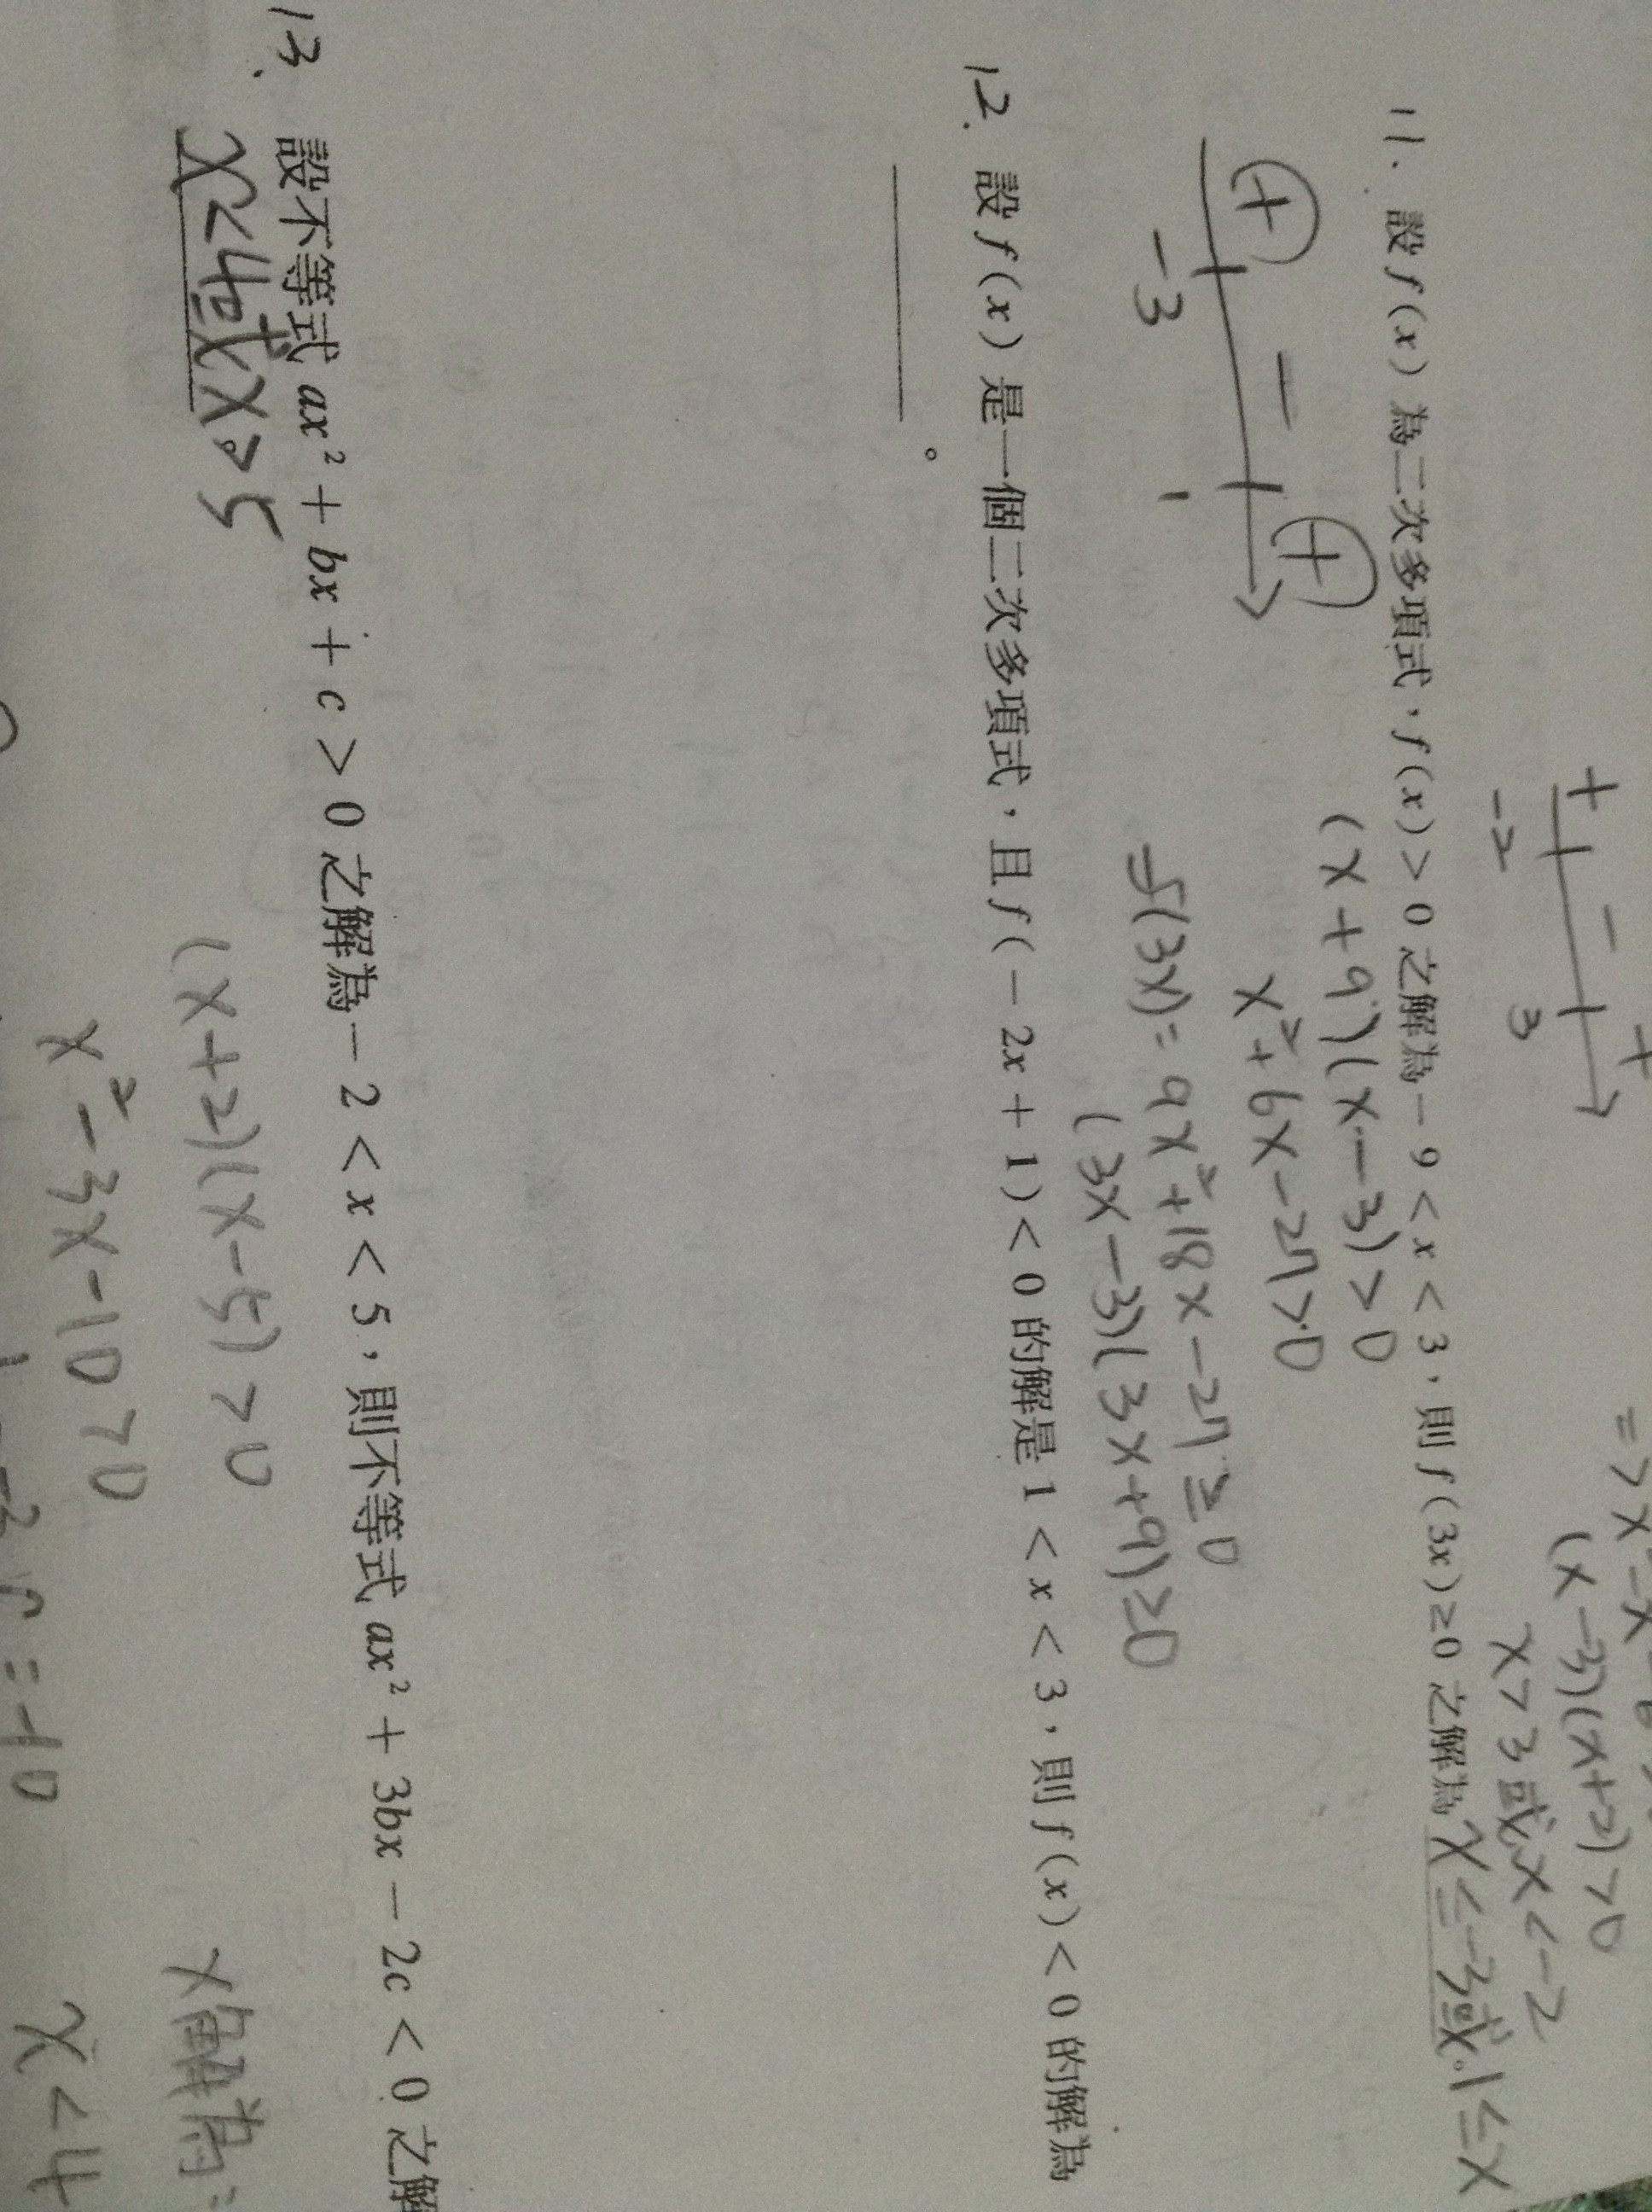 => x²-x-6>
(x-3)(x+2)>0
x>3或x<-2
+ - +
-2 3
11. 設f(x)為二次多項式,f(x)>0之解為-9<x<3,則f(3x)≥0之解為 x≤-3或1≤x
(x+9)(x-3)>0
x²+6x-27>0
+ - +
-3 1
=f(3x)=9x²+18x-27≥0
(3x-3)(3x+9)≥0
12. 設f(x)是一個二次多項式,且f(-2x+1)<0的解是1<x<3,則f(x)<0的解為
。
13. 設不等式ax²+bx+c>0之解為-2<x<5,則不等式ax²+3bx-2c<0之解
x<4或x>5
(x+2)(x-5)>0
x²-3x-10>0
x解為:
=-10
x<4